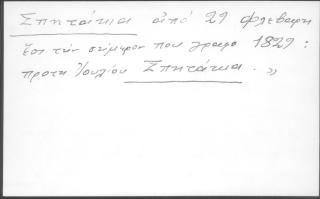 Σπητάκια ἀπό 29 Φλεβαρη
ἕος τήν σύμερον που γραφο 1829:
προτη Ἰουλίου Σπητάκια. »